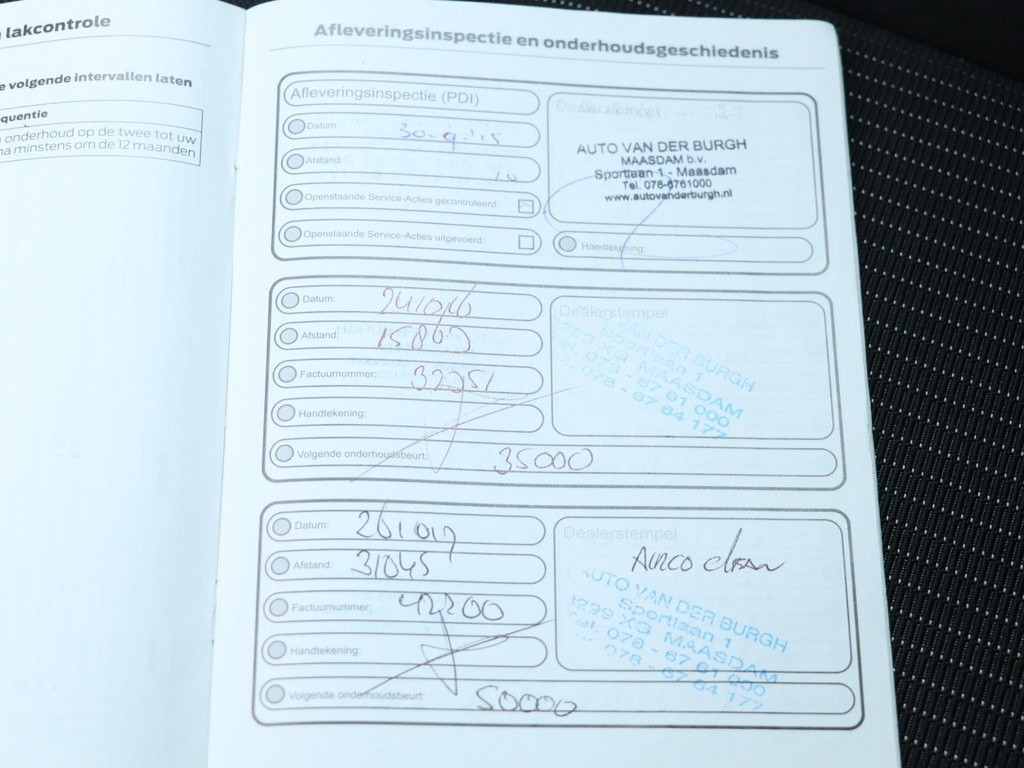 lakcontrole
e volgende intervallen laten
quentie
onderhoud op de twee tot uw
na minstens om de 12 maanden
Afleveringsinspectie en onderhoudsgeschiedenis
Afleveringsinspectie (PDI)
Datum: 30-9-'15
Afstand: 10
Openstaande Service-Acties gecontroleerd:
Openstaande Service-Acties uitgevoerd:
Dealerstempel
AUTO VAN DER BURGH
MAASDAM b.v.
Sportlaan 1 - Maasdam
Tel. 078-6761000
www.autovanderburgh.nl
Handtekening:
Datum: 241016
Afstand: 15860
Factuurnummer: 32251
Handtekening:
Volgende onderhoudsbeurt: 35000
Dealerstempel
VAN DER BURGH
Sportlaan 1
3299 XG MAASDAM
Tel. 078 - 67 61 000
078 - 67 64 177
Datum: 261017
Afstand: 31045
Factuurnummer: 42200
Handtekening:
Volgende onderhoudsbeurt: 50000
Dealerstempel
AIRCO clean
AUTO VAN DER BURGH
Sportlaan 1
3299 XG MAASDAM
Tel. 078 - 67 61 000
078 - 67 64 177